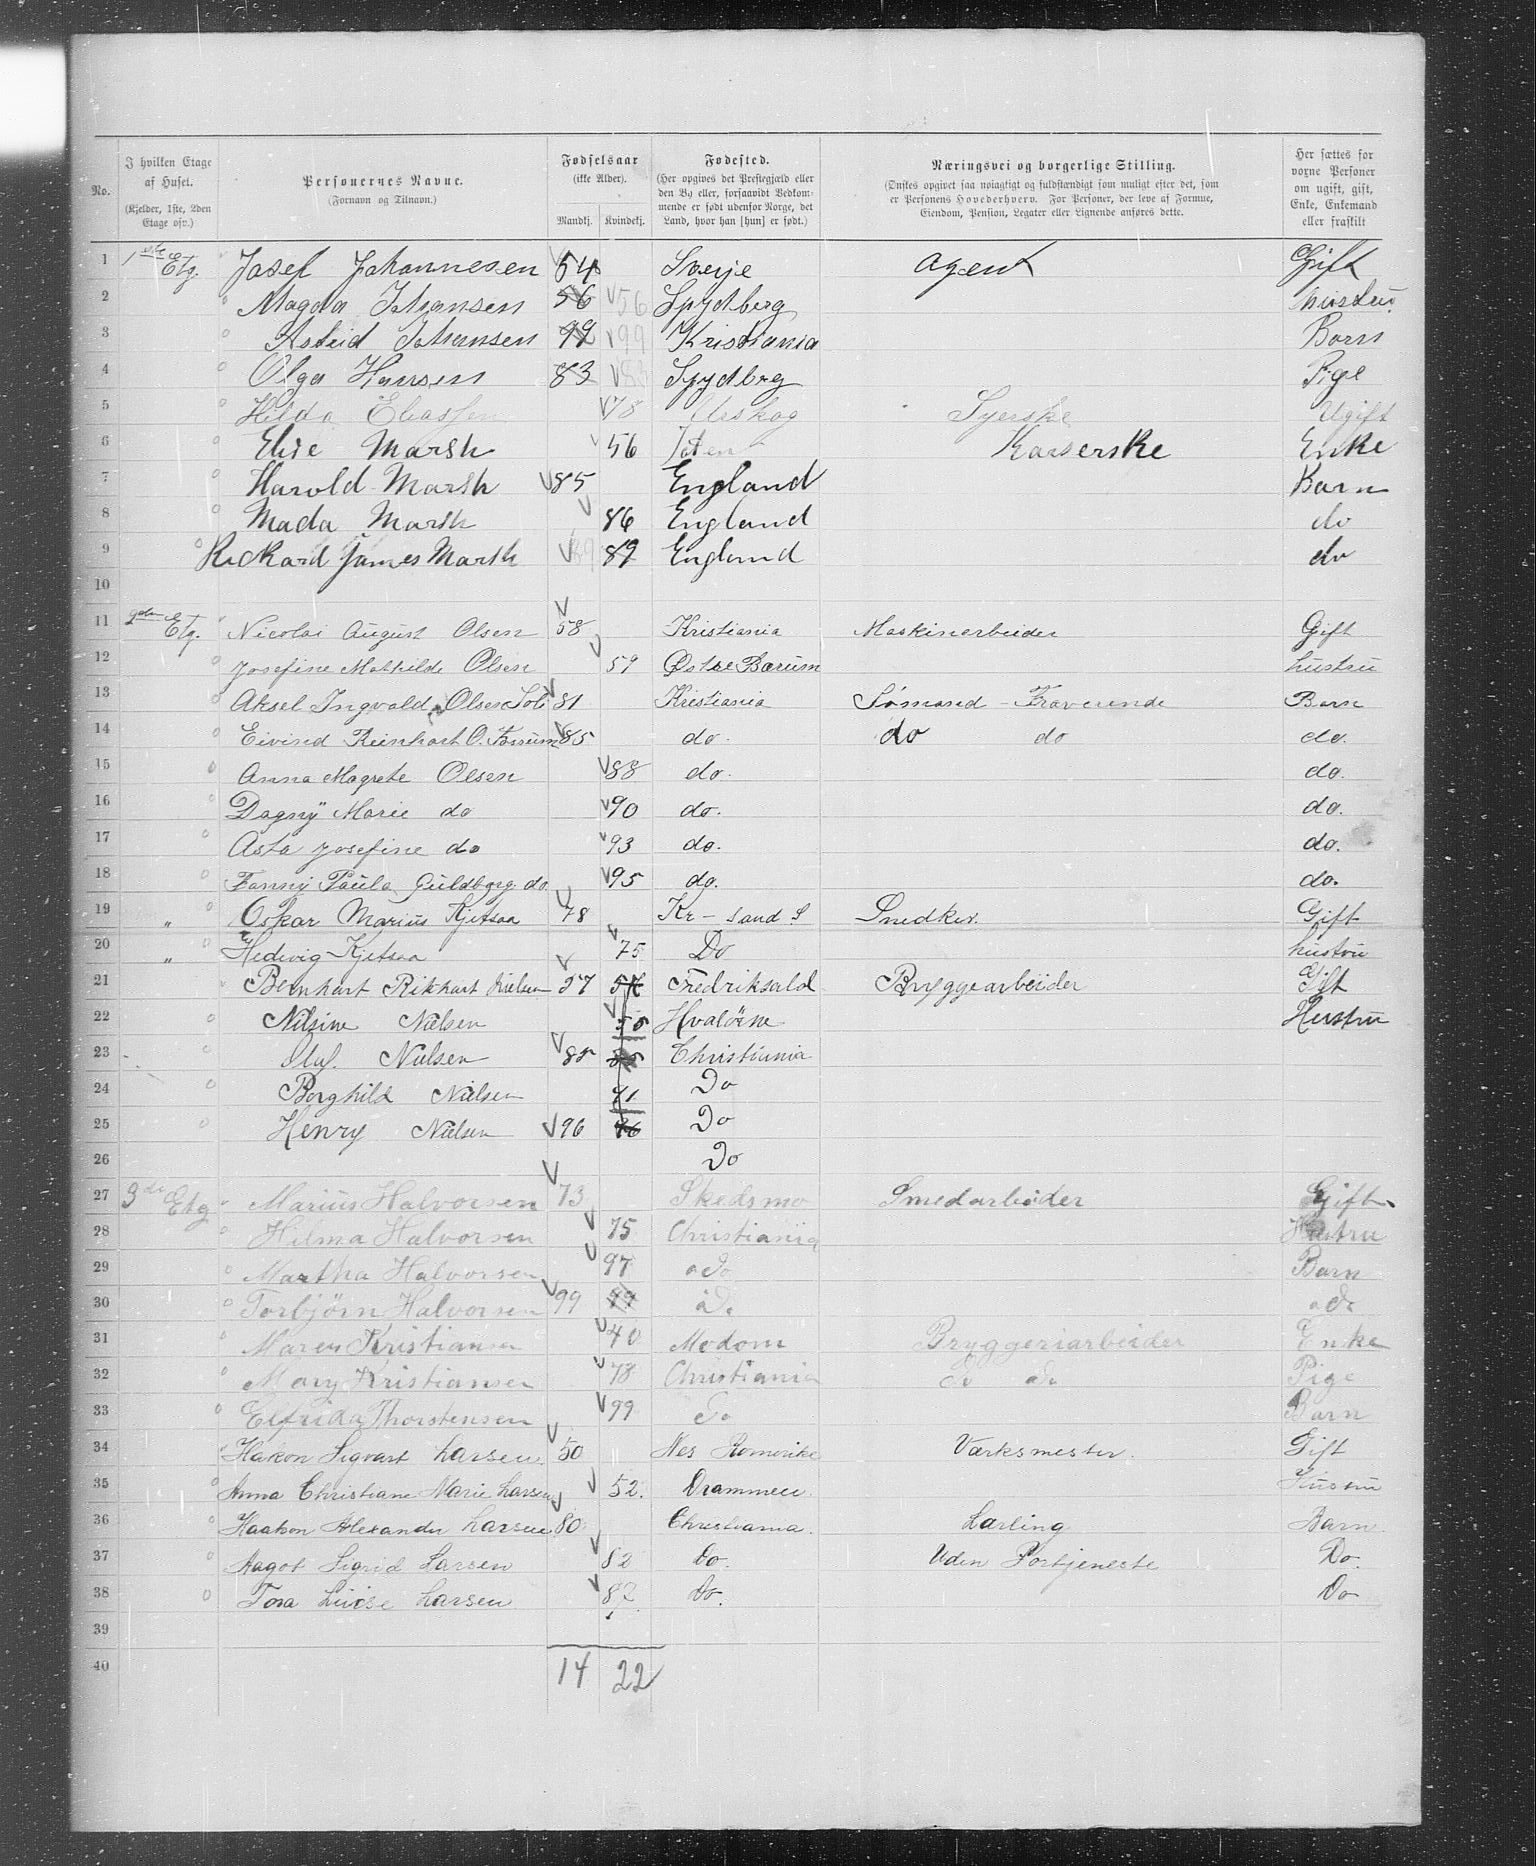 No. | I hvilken Etage af Huset. (Kjelder, 1ste, 2den Etage osv.) | Personernes Navne. (Fornavn og Tilnavn.) | Fødselsaar (ikke Alder). Mandkj. | Kvindekj. | Fødested. (Her opgives det Prestegjæld eller den By eller, forsaavidt Vedkommende er født udenfor Norge, det Land, hvor han [hun] er født.) | Næringsvei og borgerlige Stilling. (Ønskes opgivet saa nøiagtigt og fuldstændigt som muligt efter det, som er Personens Hovederhverv. For Personer, der leve af Formue, Eiendom, Pension, Legater eller Lignende anføres dette. | Her sættes for voxne Personer om ugift, gift, Enke, Enkemand eller fraskilt
1 1ste Etg. Josef Johannesen 54 Sverje agent Gift
2 " Magda Johansen 56 56 Spydberg hustru
3 Astrid Johansen 99 99 Kristiania Barn
4 Olga Hansen 83 83 Spydbrg Pige
5 Hilda Eliassen 78 Urskog Syerske Ugift
6 Elise Marsh 56 Toten Enke
7 Harold Marsh 85 England Barn
8 Mada Marsh 86 England do
9 Rickard James Marsh 89 89 England do
10
11 2den Etg. Nicolai August Olsen 58 Kristiania Maskinarbeider Gift
12 Josefine Mathilde Olsen 59 Østre Bærum hustru
13 Aksel Ingvald Olsen 81 Kristiania Sømand - Fraverende Barn
14 Eivind Reinhart O. 85 do. do do do.
15 Anna Magrete Olsen 88 do. do.
16 Dagny Marie do 90 do. do.
17 Asta Josefine do 93 do. do.
18 Fanny Paula Guldborg do 95 do. do.
19 " Oskar Marius Kjetsaa 78 Kr-sand S Snedker. Gift
20 " Hedevig Kjetsaa 75 Do hustru
21 Bernhart Rikhart Nielsen 57 Fredriksald Bryggearbeider Gift
22 Nilsine Nielsen 55 Hvaløerne Hustru
23 Olaf. Nielsen 88 Christiania
24 Borghild Nielsen 91 Do
25 Henry Nielsen 96 96 Do
26 Do
27 3de Etg Marius Halvorsen 73 Skedsmo Smedarbeider Gift
28 Hilma Halvorsen 75 Christiania Hustru
29 Martha Halvorsen 97 do Barn
30 Torbjørn Halvorsen 99 99 do do
31 Maren Kristiansen 40 Modom Bryggeriarbeider Enke
32 Mary Kristiansen 78 Christiania do do Pige
33 Elfrida Thorstensen 99 do Barn
34 Hakon Sigvart Larsen 50 Nes Romerike Værksmester. Gift
35 Anna Christiane Marie Larsen 52. Drammen Hustru
36 Haakon Alexander Larsen 80 Christiania. Lærling Barn
37 Aagot Sigrid Larsen 82 Do. Uden Fortjeneste Do.
38 Tora Lovise Larsen 87 Do. Do
39
40 14 22